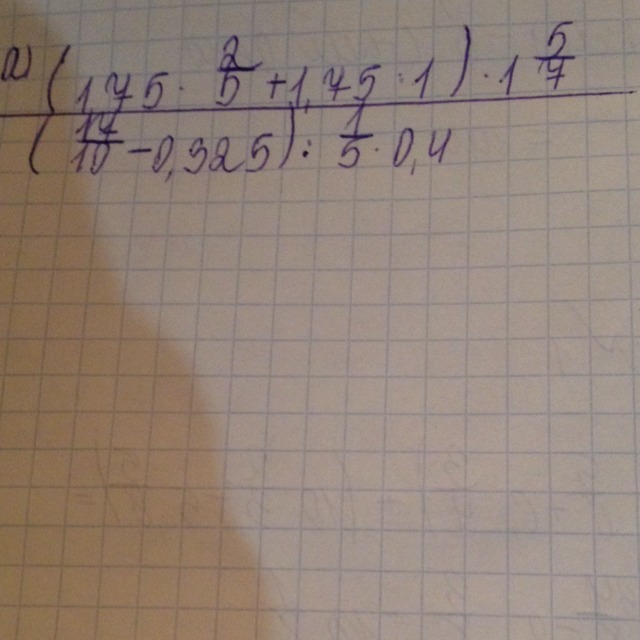 а) (1,75 · 2/5 + 1,75 : 1) · 1 5/7
(17/10 − 0,325) : 1/5 · 0,4